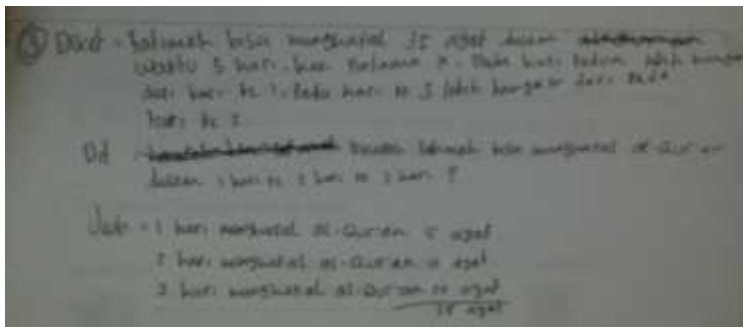 ③ Diket = Fatimah bisa menghafal 35 ayat dalam
waktu 3 hari. hari Pertama x. Pada hari kedua lebih banyak
dari hari ke 1. Pada hari ke 3 lebih banyak dari Pada
hari ke 2.
Dit Fatimah bisa menghafal al-Qur'an
dalam 1 hari ke 2 hari ke 3 hari ?
Jwb = 1 hari menghafal al-Qur'an 5 ayat
2 hari menghafal al-Qur'an ayat
3 hari menghafal al-Qur'an ayat
35 ayat